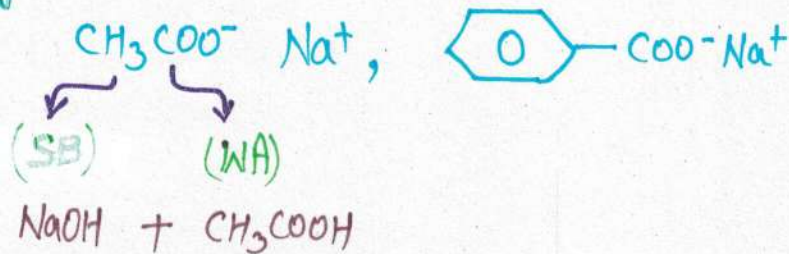 CH₃COO⁻ Na⁺, COO⁻Na⁺
(SB) (WA)
NaOH + CH₃COOH